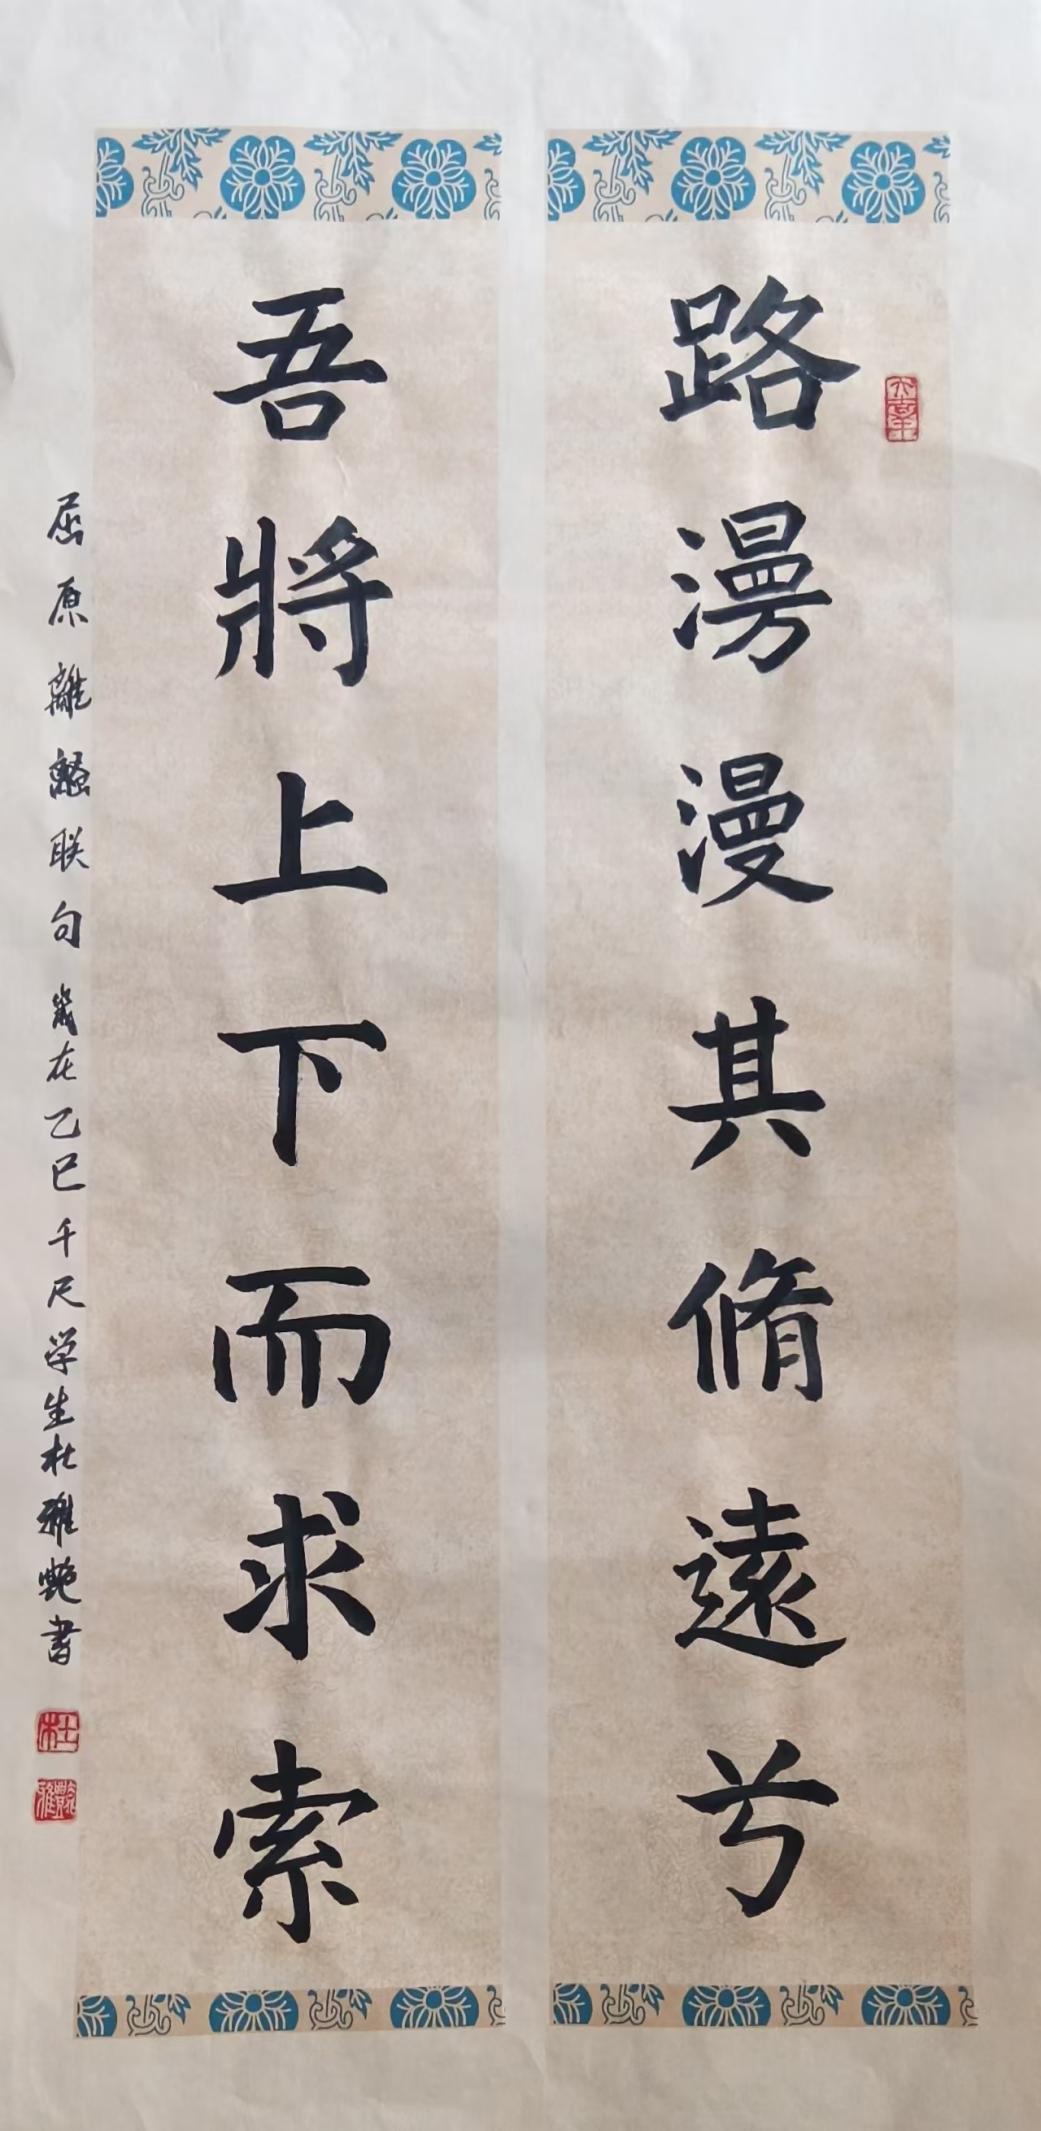 路漫漫其脩遠兮
吾將上下而求索
屈原離騷联句 歲在乙巳千尺学生杜雅艷書
杜
雅艷